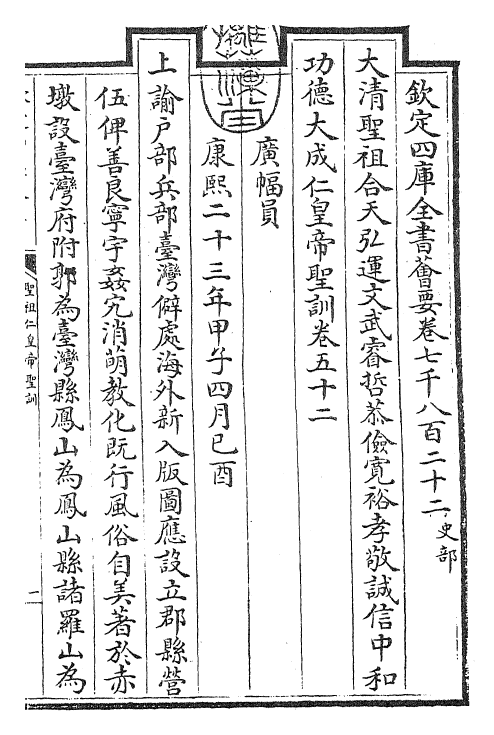 欽定四庫全書薈要卷七千八百二十二史部
大清聖祖合天弘運文武睿哲恭儉寬裕孝敬誠信中和
功德大成仁皇帝聖訓卷五十二
廣幅員
康熙二十三年甲子四月己酉
上諭戶部兵部臺灣僻處海外新入版圖應設立郡縣營
伍俾善良寧宇姦宄消萌教化既行風俗自美著於赤
墩設臺灣府附郭為臺灣縣鳳山為鳳山縣諸羅山為
聖祖仁皇帝聖訓